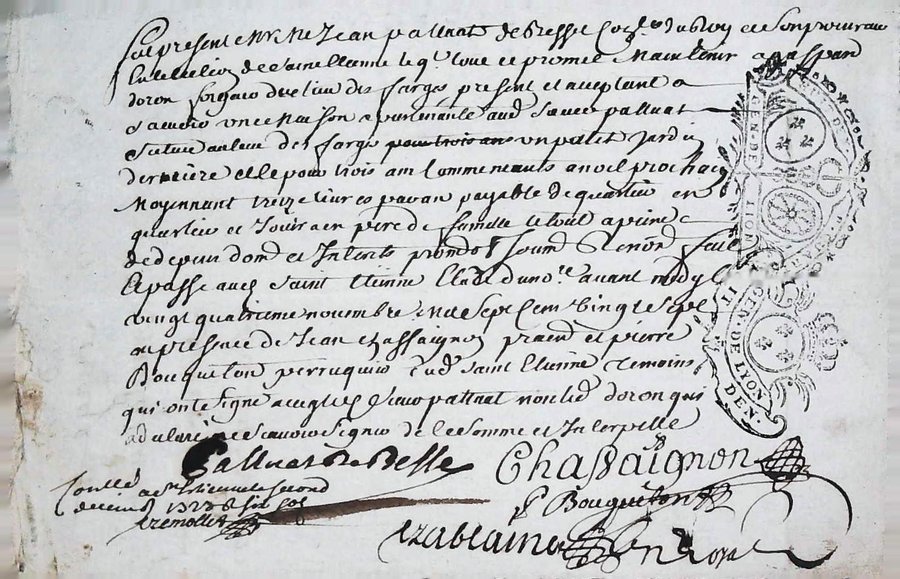 fut present Me Jean palluat de besse Coner du Roy et Son procureur
en lelection de Saint Etienne lequel loue et promet Maintenir a
doron forgeur du lieu des forges present et acceptant
Scavoir une Maison apartenante aud Sieur palluat
Scituee au lieu des forges pour trois ans un petit Jardin
derriere et ce pour trois ans Commencants a prochain
Moyennant treize livres par an payable de quartier en
quartier et Jouira en pere de famille le tout a peine
de depens dom et Interets promdt Soumt Renont
et passe aud Saint Etienne Etude du nore avant midy
vingt quatrieme novembre mil Sept Cent vingt Sept
en presence de Jean Chassaignon praen et pierre
Bouqueton perruquier aud Saint Etienne temoins
qui ont Signé avec led Sieur palluat non led doron qui
a declaré ne Scavoir Signer de ce Somme et Interpellé
Palluat De Besse
Chassaignon
P Bouqueton
Conllé a St Etienne le Second
decembre 1727
GEN DE LYON